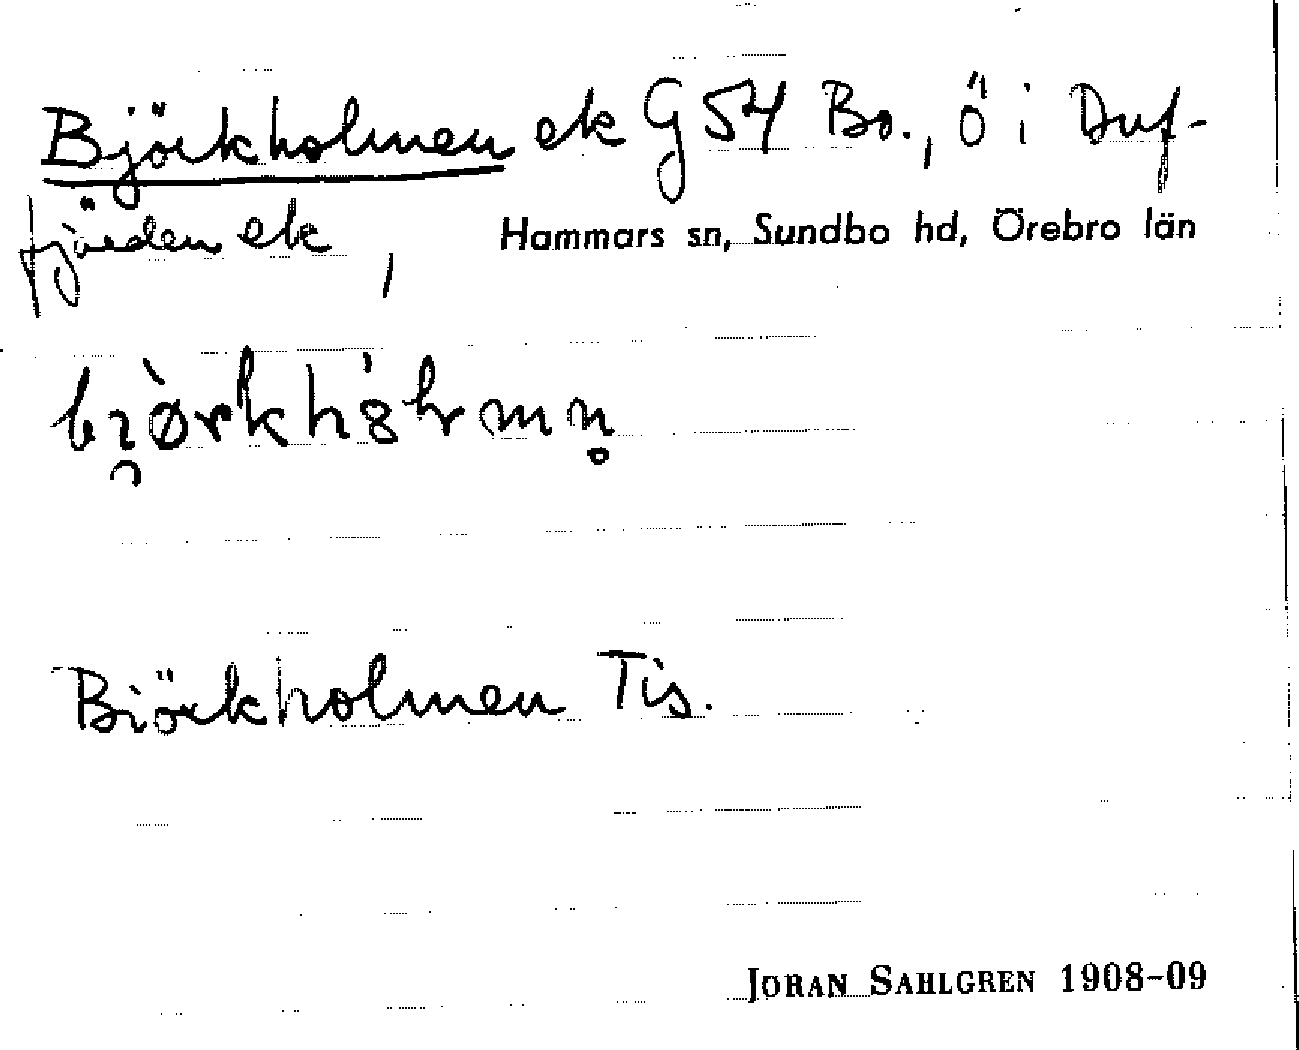 Björkholmen ek G 54 Bo., ö i Duf-
fjärden ek, Hammars sn, Sundbo hd, Örebro län
Björkholmen Tis.
JÖRAN SAHLGREN 1908-09